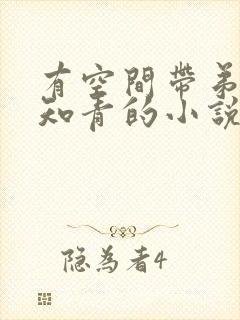 有空間帶弟
知青的小說
隐為者4